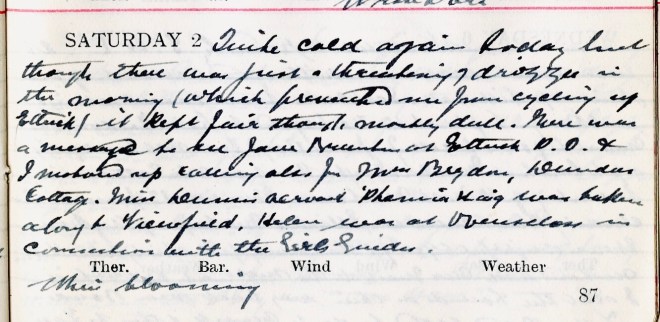 SATURDAY 2 Quite cold again today but
though there was just a threatening of drizzle in
the morning (which prevented me from cycling up
Ettrick) it kept fair though mostly dull. There was
a message to see Jane at Ettrick P.O. &
I motored up calling also for Mrs Brydon, Dundas
Cottage. Miss servant Haig was taken
along to Viewfield. Helen was at in
connection with the Girl Guides.
Ther. Bar. Wind Weather
Whin blooming
87